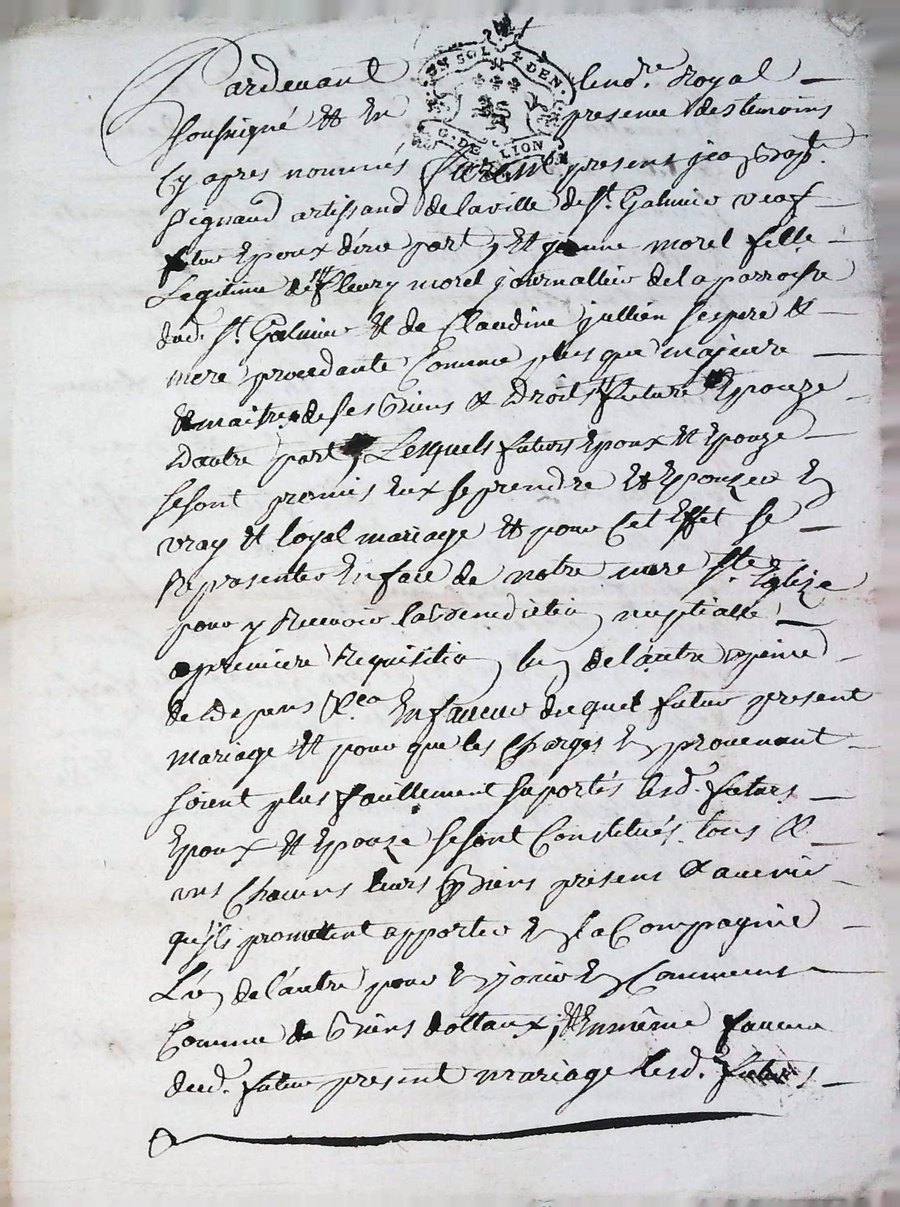 UN SOL 4 DEN.
G. DE LION
Pardevant le no.re Royal
Soussigné et en presence des temoins
Cy apres nommés furent present jean Bap.te
Pignaud artissand de la ville de S.t Galmier veof
futur Epoux d'une part, Et jeanne morel fille
Legitime de fleury morel journallier de la parroisse
dud. S.t Galmier et de Claudine jullien ses pere &
mere procedante Comme plus que majeure
& maitresse de ses Biens & Droits future Epouze
D'autre part, Lesquels futurs Epoux et Epouze
se sont promis eux se prendre et Epouzer en
vray et loyal mariage et pour Cet Effet se
Representer en face de notre mere S.te Eglize
pour y Recevoir la Benediction nuptialle
a premiere Requisition lun de l'autre a peine
de Depens &ca En faveur duquel futur present
mariage et pour que les Charges en provenant
soient plus facillement suportés lesd. futurs
Epoux et Epouze se sont Constitués tous &
uns Chacuns leurs Biens presens & avenir
qu'ils promettent apporter en la Compagnie
L'un de l'autre pour en jouir en Commun
Comme de Biens dottaux, Et En même faveur
dud. futur present mariage lesd. futurs